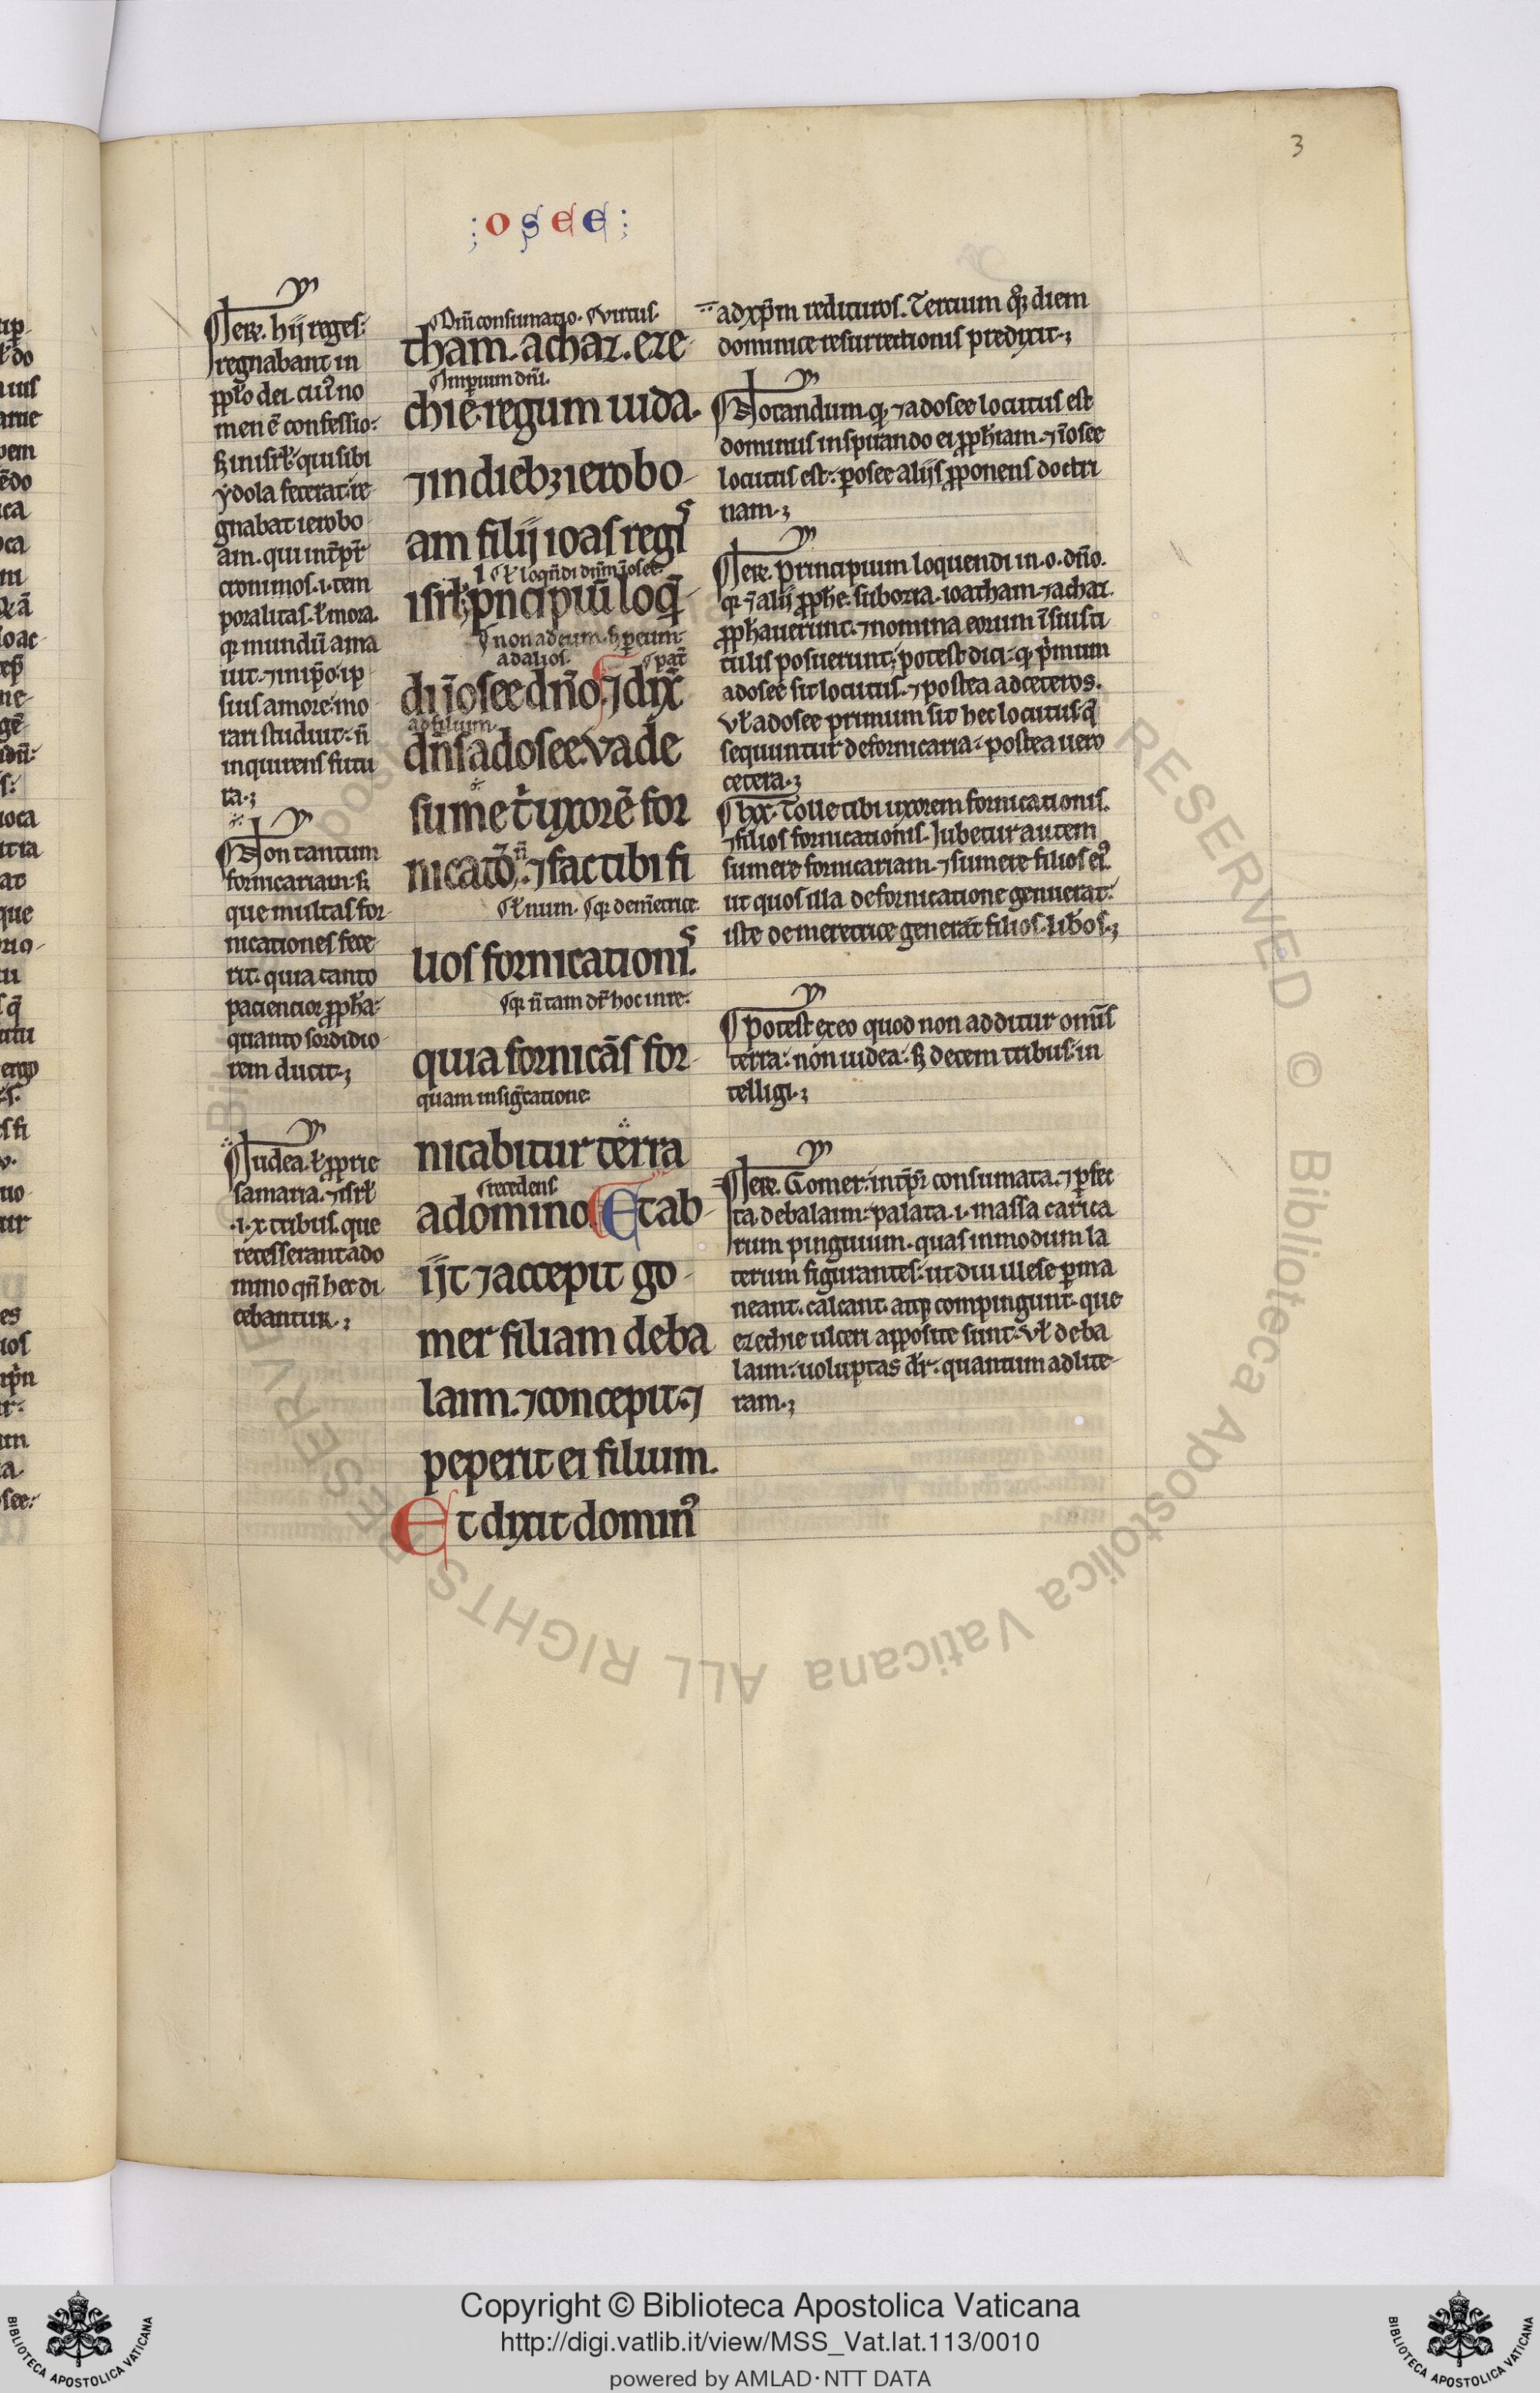 3
: o s e e :
Jere. hij reges
regnabant in
pp̄lo dei. cui9 no
men ē confessio:
Sꝫ in isrl̄ qui sibi
ydola fecerat. re
gnabat ierobo
am. qui int̄p̄t̄
cionimos .i. tem
poralitas. ł mora.
qꝛ mundū ama
uit. ⁊ in ip̄o. ip
sius amore. mo
rari studuit. n̄
inquirens futu
ra.;
Non tantum
fornicariam. sꝫ
que multas for
nicationes fece
rit. quia tanto
paciencior ꝓpħa.
quanto sordidio
rem ducit.;
Judea. ł ꝓprie
samaria. ⁊ isrl̄
.i. x tribus. que
recesserant a do
mino qn̄ hec di
cebantur.;
Dn̄i consumatio. virtus.
tham. achaz. eze
imperium dn̄i.
chie. regum iuda.
⁊ in diebꝫ ierobo
am filij ioas regis
ł loqn̄di dn̄m ī osee.
isrl̄; pncipiū loq̄
non ad eum. sꝫ per eum
ad alios. pat̄
dī ī osee dn̄o. ⁊ dix̄
ad filium.
dn̄s ad osee. vade
sume t̄ uxorē for
nicatō. ⁊ fac tibi fi
ł num. qꝛ de meretrice
lios fornicationis.
qꝛ n̄ tam dr̄ hoc in re.
quia fornicās for
quam in signicatione
nicabitur terra
recedens
a domino Et ab
ijt ⁊ accepit go
mer filiam deba
laim. ⁊ concepit. ⁊
peperit ei filium.
Et dixit domin9
ad xp̄m redituros. Tercium qꝫ diem
dominice resurrectionis predixit.;
Notandum. qꝫ ⁊ ad osee locutus est
dominus inspirando ei ꝓpħiam. ⁊ ī osee
locutus est. per osee alijs ꝓponens doctri
nam.;
Jere. Principium loquendi in .o. dn̄o.
qꝛ ⁊ alij ꝓpħe. sub ozia. ioatham. ⁊ achaz.
ꝓpħauerunt. ⁊ nomina eorum ī suis ti
tulis posuerunt. potest dici. qꝫ p̄mum
ad osee sit locutus. ⁊ postea ad ceteros.
Vł ad osee primum sit hec locutus. q̄
sequuntur de fornicaria. postea uero
cetera.;
lxx. Tolle tibi uxorem fornicationis.
⁊ filios fornicationis. Jubetur autem
sumere fornicariam. ⁊ sumere filios ei9.
ut quos illa de fornicatione genuerat.
iste de meretrice generat filios. lib̄os.;
Potest ex eo quod non additur omīs
terra. non iudea. sꝫ decem tribus. in
telligi.;
Jere. Gomer. int̄p̄r consumata. ⁊ perfec
ta. debalaim. palata .i. massa carica
rum pinguium. quas in modum la
terum figurantes. ut diu illese perma
neant. calcant. atqꝫ compingunt. que
ezechie ulceri apposite sunt. vł deba
laim. uoluptas dr̄. quantum ad lite
ram.;
© Biblioteca Apostolica Vaticana ALL RIGHTS RESERVED
Copyright © Biblioteca Apostolica Vaticana
http://digi.vatlib.it/view/MSS_Vat.lat.113/0010
powered by AMLAD·NTT DATA
BIBLIOTECA APOSTOLICA VATICANA
BIBLIOTECA APOSTOLICA VATICANA